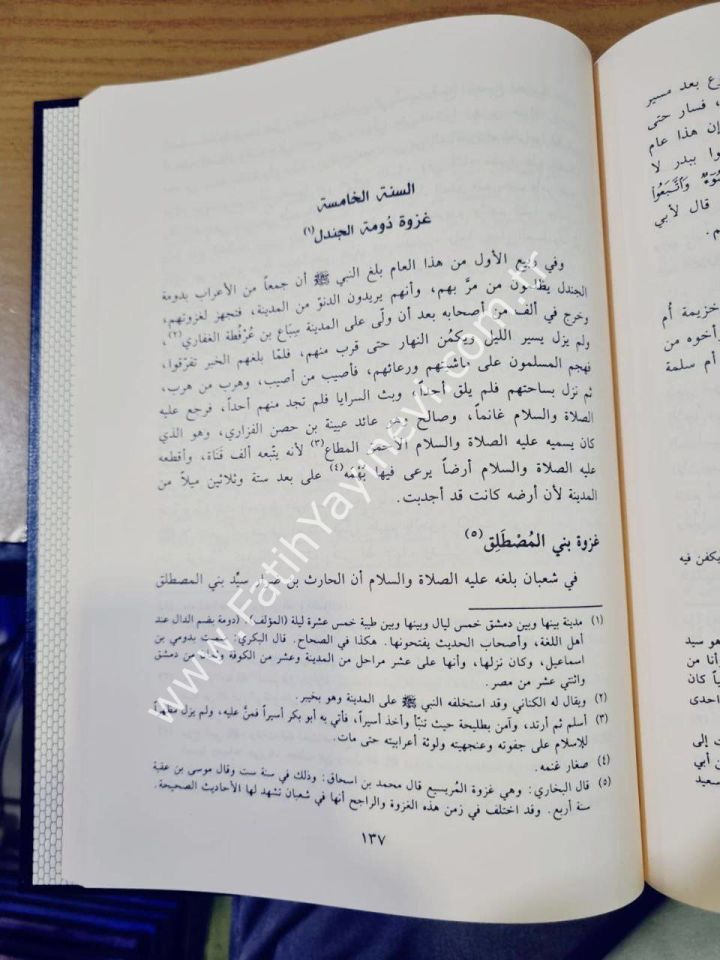 السنة الخامسة
غزوة دُومة الجندل (١)
وفي ربيع الأول من هذا العام بلغ النبي ﷺ أن جمعاً من الأعراب بدومة
الجندل يظلمون من مرَّ بهم، وأنهم يريدون الدنوّ من المدينة، فتجهز لغزوتهم،
وخرج في ألف من أصحابه بعد أن ولّى على المدينة سِبَاع بن عُرْفُطة الغفاري (٢)،
ولم يزل يسير الليل ويكمُن النهار حتى قرب منهم، فلمّا بلغهم الخبر تفرّقوا،
فهجم المسلمون على ماشيتهم ورعائهم، فأصيب من أصيب، وهرب من هرب،
ثم نزل بساحتهم فلم يلق أحداً، وبث السرايا فلم تجد منهم أحداً، فرجع عليه
الصلاة والسلام غانماً، وصالح وهو عائد عيينة بن حصن الفزاري، وهو الذي
كان يسميه عليه الصلاة والسلام الأحمق المطاع (٣) لأنه يتْبعه ألف قَنَاة، وأقطعه
عليه الصلاة والسلام أرضاً يرعى فيها بَهْمَه (٤) على بعد ستة وثلاثين ميلاً من
المدينة لأن أرضه كانت قد أجدبت.
غزوة بني المُصْطَلِق (٥)
في شعبان بلغه عليه الصلاة والسلام أن الحارث بن ضرار سيِّد بني المصطلق
(١) مدينة بينها وبين دمشق خمس ليال وبينها وبين طيبة خمس عشرة ليلة (المؤلف) (دومة بضم الدال عند
أهل اللغة، وأصحاب الحديث يفتحونها. هكذا في الصحاح. قال البكري: سميت بدومي بن
اسماعيل، وكان نزلها، وأنها على عشر مراحل من المدينة وعشر من الكوفة وثمان من دمشق
واثنتي عشر من مصر.
(٢) ويقال له الكناني وقد استخلفه النبي ﷺ على المدينة وهو بخيبر.
(٣) أسلم ثم أرتد، وآمن بطليحة حيث تنبّأ وأخذ أسيراً، فأتي به أبو بكر أسيراً فمنَّ عليه، ولم يزل مظهراً
للإسلام على جفوته وعنجهيته ولوثة أعرابيته حتى مات.
(٤) صغار غنمه.
(٥) قال البخاري: وهي غزوة المُريسيع قال محمد بن اسحاق: وذلك في سنة ست وقال موسى بن عقبة
سنة أربع. وقد اختلف في زمن هذه الغزوة والراجح أنها في شعبان تشهد لها الأحاديث الصحيحة.
١٣٧
ع بعد مسير
، فسار حتى
إن هذا عام
وا ببدر لا
وَٱتَّبَعُوا۟
قال لأبي
م.
خزيمة أم
وأخوه من
أم سلمة
يكفن فيه
هو سيد
وأنا من
ياً كان
احدى
ت إلى
ن أبي
سعيد
www.FatihYayinevi.com.tr